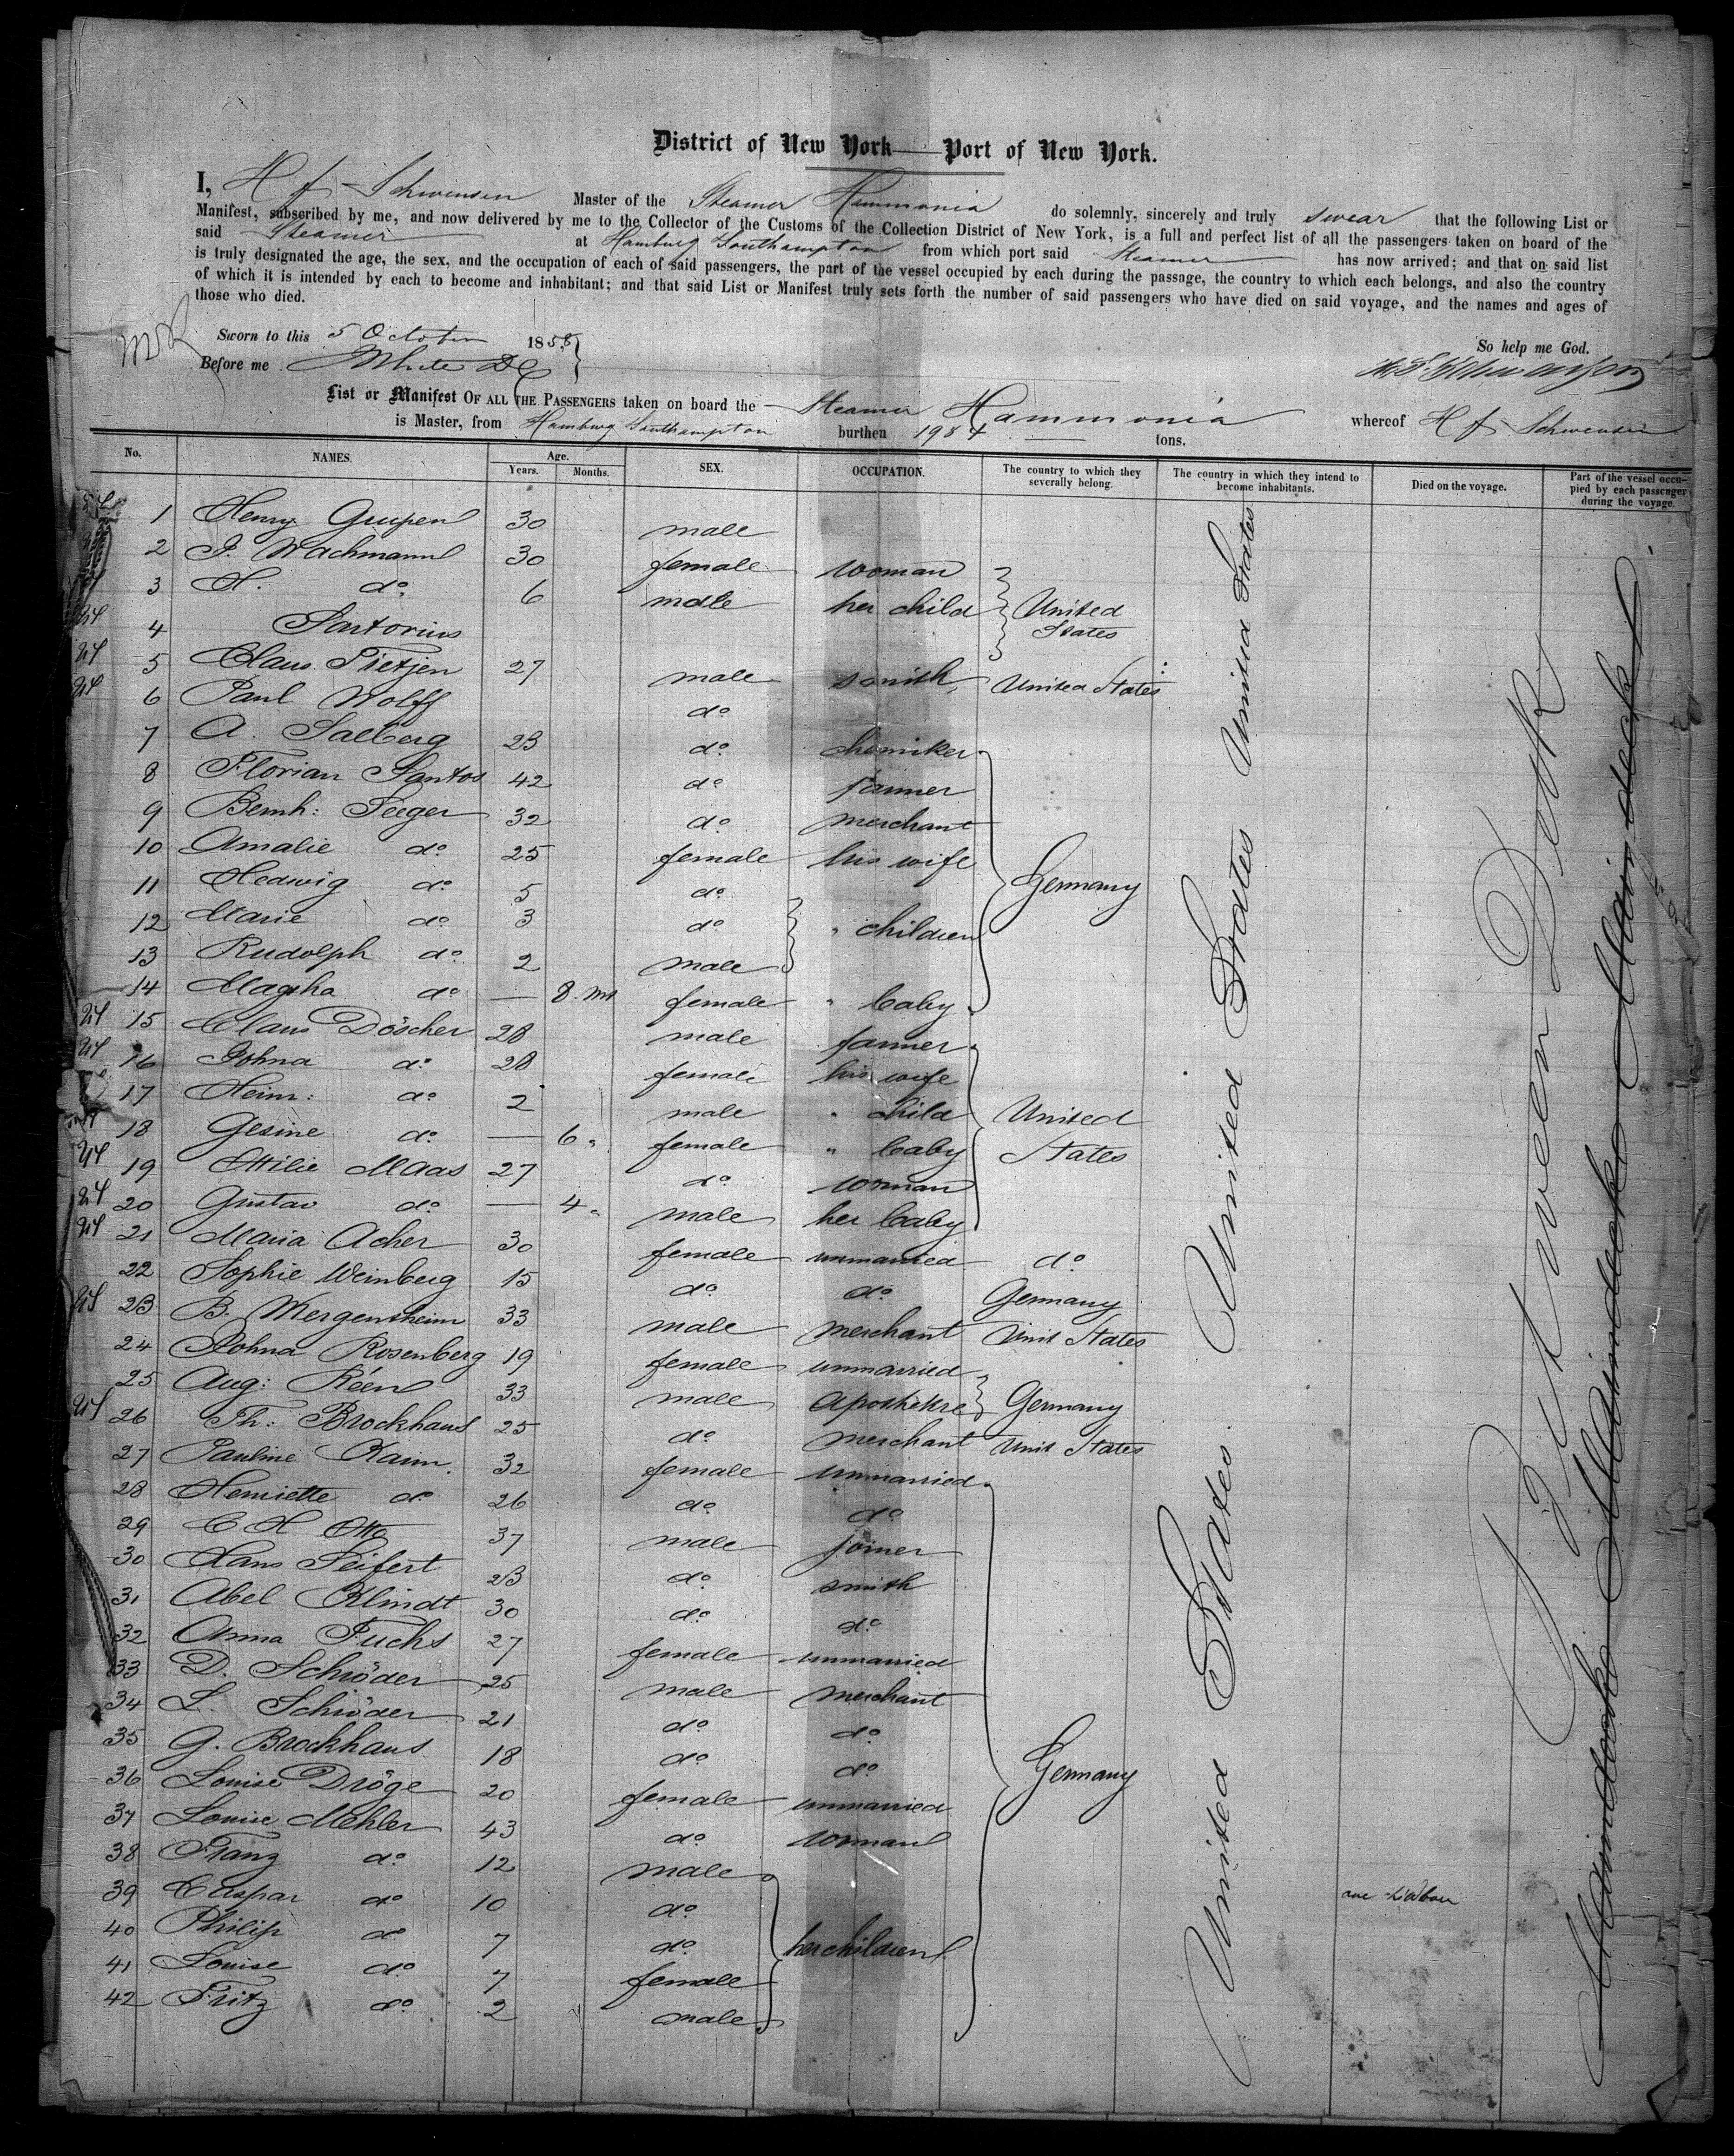 District of New York — Port of New York.
I, H f Schwensen Master of the Steamer Hammonia do solemnly, sincerely and truly swear that the following List or
Manifest, subscribed by me, and now delivered by me to the Collector of the Customs of the Collection District of New York, is a full and perfect list of all the passengers taken on board of the
said Steamer at Hamburg Southampton from which port said Steamer has now arrived; and that on said list
is truly designated the age, the sex, and the occupation of each of said passengers, the part of the vessel occupied by each during the passage, the country to which each belongs, and also the country
of which it is intended by each to become and inhabitant; and that said List or Manifest truly sets forth the number of said passengers who have died on said voyage, and the names and ages of
those who died.
Sworn to this 5 October 1858
So help me God.
Before me White
List or Manifest OF ALL THE PASSENGERS taken on board the Steamer Hammonia whereof H f Schwensen
is Master, from Hamburg Southampton burthen 1984 tons.
No. NAMES. Age. Years. Months. SEX. OCCUPATION. The country to which they severally belong. The country in which they intend to become inhabitants. Died on the voyage. Part of the vessel occupied by each passenger during the voyage.
1 Henry Gupen 30 male
2 J. Wachmann 30 female woman
3 H. do 6 male her child United States
4 Sartorius
5 Claus Tietjen 27 male smith United States
6 Paul Wolff do
7 A. Salberg 23 do chemiker
8 Florian Santos 42 do farmer
9 Bernh: Seeger 32 do merchant
10 Amalie do 25 female his wife Germany
11 Hedwig do 5 do
12 Marie do 3 do " children
13 Rudolph do 2 male
14 Magtha do — 8 ms female " baby
15 Claus Döscher 28 male farmer
16 Johna do 28 female his wife
17 Hein: do 2 male " child United
18 Gesine do — 6 " female " baby States
19 Ottilie Maas 27 do woman
20 Gustav do — 4 " male her baby
21 Maria Acher 30 female unmarried do
22 Sophie Weinberg 15 do do Germany
23 B. Mergentheim 33 male merchant Unit States
24 Johna Rosenberg 19 female unmarried
25 Aug: Réen 33 male Apothekre Germany
26 Th: Brockhaus 25 do merchant Unit States
27 Pauline Kaim 32 female unmarried
28 Henriette do 26 do do
29 C H Otto 37 male joiner
30 Hans Seifert 23 do smith
31 Abel Klindt 30 do do
32 Anna Fuchs 27 female unmarried
33 D. Schröder 25 male merchant
34 L. Schröder 21 do do
35 G. Brockhaus 18 do do Germany
36 Louise Dröge 20 female unmarried
37 Louise Mehler 43 do woman
38 Franz do 12 male
39 Caspar do 10 do
40 Philip do 7 do her children
41 Louise do 7 female
42 Fritz do 2 male
United States United States United States
Between Deck
Maindeck Maindeck Main deck